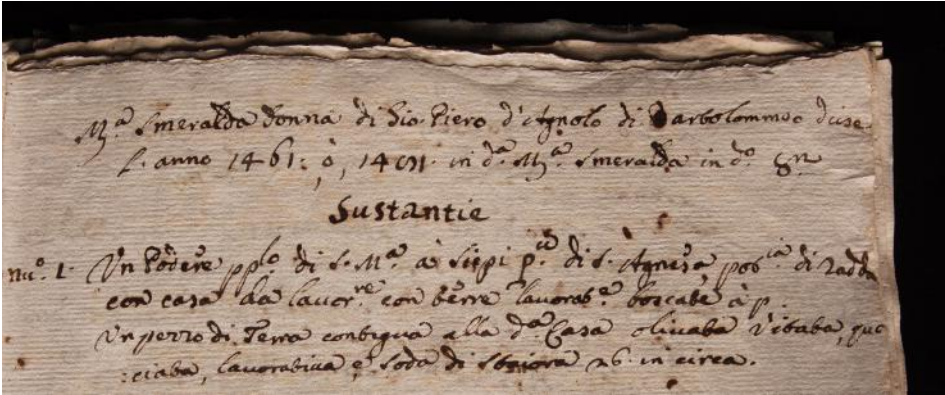 M.ª Smeralda Donna di Gio: Piero d'Agnolo di Bartolommeo disse
l'anno 1461: ò, 14 in d.ª M.ª Smeralda in d.º
Sustantie
nu.º 1. Un Podere pplo di S. M.ª à di S. Agnesa di Radda
con casa da lavor.re con terre lavorat.e boscate à p.
Un pezzo di Terra contigua alla d.ª Casa olivata vitata, que
:ciata, lavorativa e soda di Staiora 26 in circa.